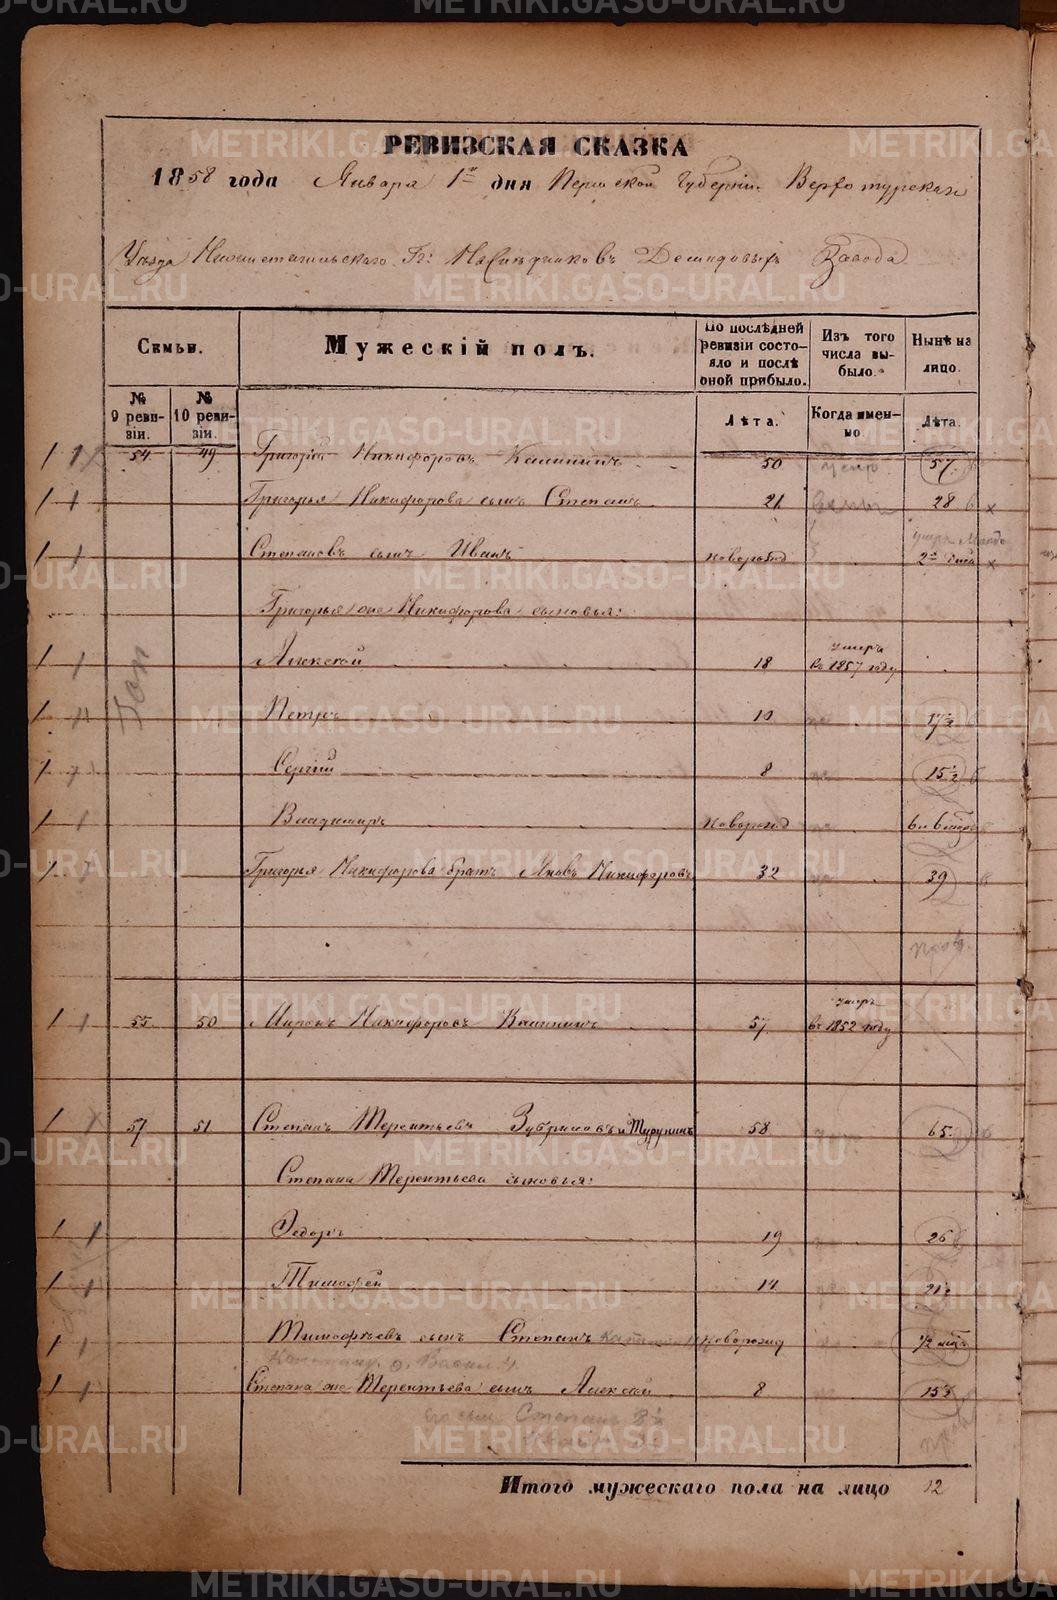 РЕВИЗСКАЯ СКАЗКА
1858 года Января 1го дня Пермской Губернии Верхотурскаго
Уѣзда Нижнетагильскаго Гг: Наслѣдниковъ Демидовыхъ Завода
Семьи.
Мужескій полъ.
По послѣдней ревизіи состояло и послѣ оной прибыло.
Изъ того числа выбыло.
Нынѣ на лицо.
№ 9 ревизіи.
№ 10 ревизіи.
Лѣта.
Когда именно.
Лѣта.
54 49 Григорій Никифоровъ 50 57
Григорья Никифорова сынъ Степанъ 21 28
Степановъ сынъ Иванъ новорожд
Григорья же Никифорова сыновья:
Алексѣй 18 умеръ въ 1857 году
Петръ 10 17½
Сергій 8 15½
Владимиръ новорожд
Григорья Никифорова братъ Яковъ Никифоровъ 32 39
55 50 Миронъ Никифоровъ 57 умеръ въ 1852 году
57 51 Степанъ Терентьевъ Зубриловъ и Турунинъ 58 65
Степана Терентьева сыновья:
Ѳедоръ 19 26
Тимофей 14 21½
Тимофѣевъ сынъ Степанъ новорожд
Степана же Терентьева сынъ Алексѣй 8 15½
Степанъ
Итого мужескаго пола на лицо 12
METRIKI.GASO-URAL.RU